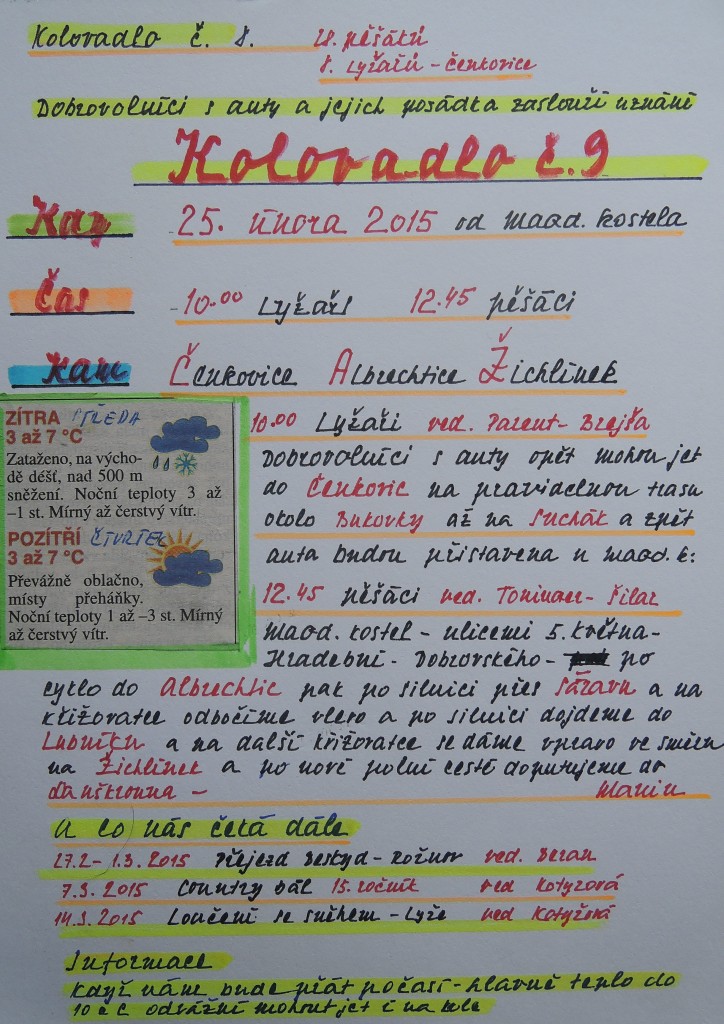 Kolovadlo č. 8. 28. pěšáků
8. Lyžařů - Čenkovice
Dobrovolníci s auty a jejich posádka zaslouží uznání
Kolovadlo č. 9
Kdy 25. února 2015 od maod. kostela
Čas 10.00 Lyžaři 12.45 pěšáci
Kam Čenkovice Albrechtice Žichlínek
ZÍTRA STŘEDA
3 až 7 °C
Zataženo, na výcho-
dě déšť, nad 500 m
sněžení. Noční teploty 3 až
–1 st. Mírný až čerstvý vítr.
POZÍTŘÍ ČTVRTEK
3 až 7 °C
Převážně oblačno,
místy přeháňky.
Noční teploty 1 až –3 st. Mírný
až čerstvý vítr.
10.00 Lyžaři ved. Parent - Brejša
Dobrovolníci s auty opět mohou jet
do Čenkovic na pravidelnou trasu
okolo Bukovky až na Suchák a zpět
auta budou přistavena u maod. k:
12.45 pěšáci ved. - Šilar
Maod. kostel - ulicemi 5. května -
Hradební - Dobrovského - po
cyklo do Albrechtic pak po silnici přes Sázavu a na
křižovatce odbočíme vlevo a po silnici dojdeme do
Lubníku a na další křižovatce se dáme vpravo ve směru
na Žichlínek a po nové polní cestě doputujeme do
Lanškrouna - Maniu
A co nás čeká dále
27.2 - 1.3. 2015 Přejezd Beskyd - Rožnov ved. Beran
7.3. 2015 Country bál 15. ročník ved Kotyzová
14.3. 2015 Loučení se sněhem - Lyže ved Kotyžová
Informace
Když nám bude přát počasí - hlavně teplo do
10 °C odvážní mohout jet i na kole